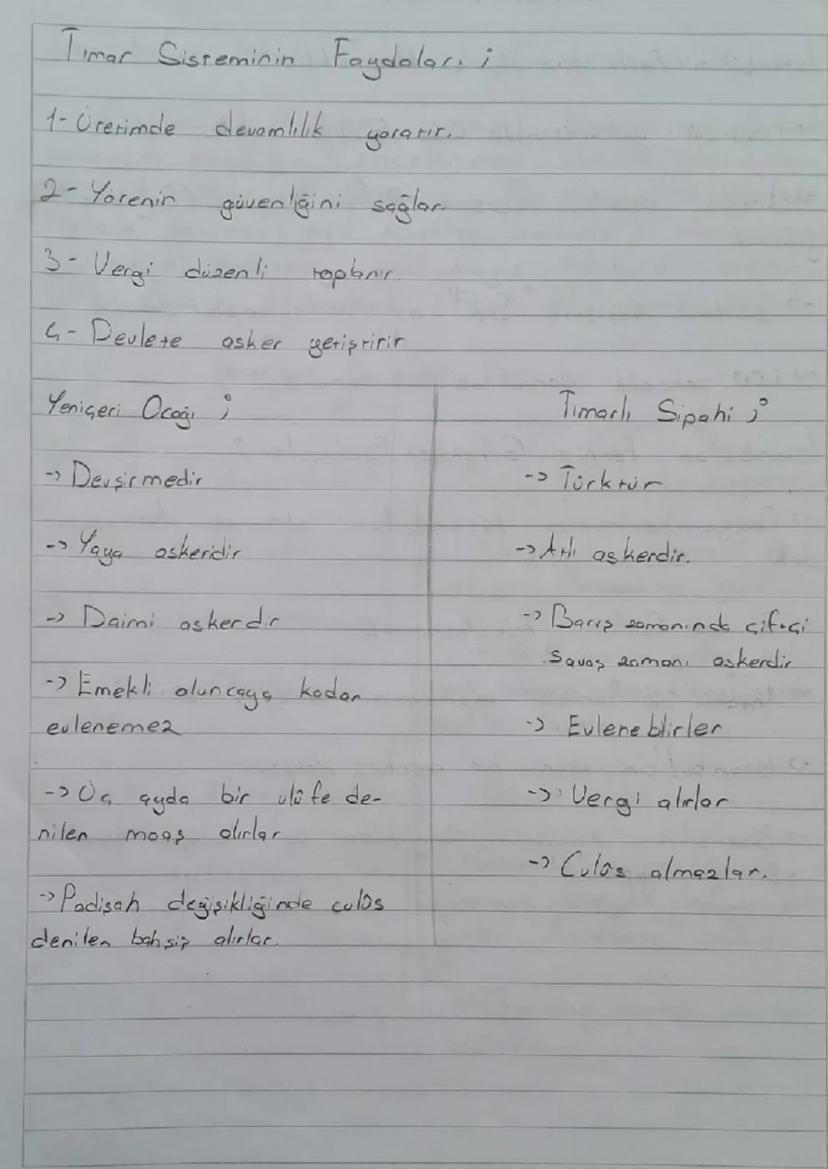 Tımar Sisteminin Faydaları ;
1- Üretimde devamlılık yaratır.
2- Yörenin güvenliğini sağlar.
3- Vergi düzenli toplanır.
4- Devlete asker yetiştirir
Yeniçeri Ocağı ;
-> Devşirmedir
-> Yaya askeridir
-> Daimi askerdir
-> Emekli oluncaya kadar
evlenemez
-> Üç ayda bir ulûfe de-
nilen maaş alırlar
-> Padişah değişikliğinde culûs
denilen bahşiş alırlar.
Tımarlı Sipahi ;
-> Türktür
-> Atlı askerdir.
-> Barış zamanında çiftçi
savaş zamanı askerdir
-> Evleneblirler
-> Vergi alırlar
-> Culûs almazlar.